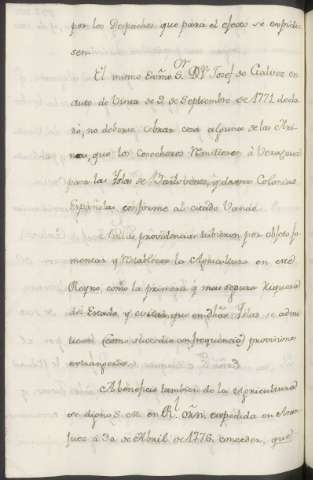 por los Despachos que para el efecto se expidie-
sen.
El mismo Exmo. Sr. Dn. Josef de Galvez en
auto de Visita de 2 de Septiembre de 1771 decla-
ró, no deberse cobrar cosa alguna de las Ari-
nas, que los Cosecheros remitiesen á Veracruz
para las Islas de Barlovento, y demas Colonias
Españolas, conforme al citado Vando.
Estas providencias tubieron por objeto fo-
mentar y restablecer la Agricultura en este
Reyno, como la primera y mas segura riqueza
del Estado, y evitar que en dhas. Islas se admi-
tiesen (como sucedia con frequencia) provisiones
extrangeras.
A beneficio tambien de la Agricultura
se dignó S. M. en Rl. Orn. expedida en Aran-
juez á 30 de Abril de 1776, conceder, que